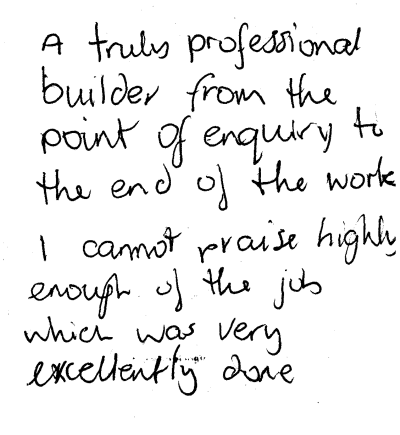 A truly professional
builder from the
point of enquiry to
the end of the work
I cannot praise highly
enough of the job
which was very
excellently done